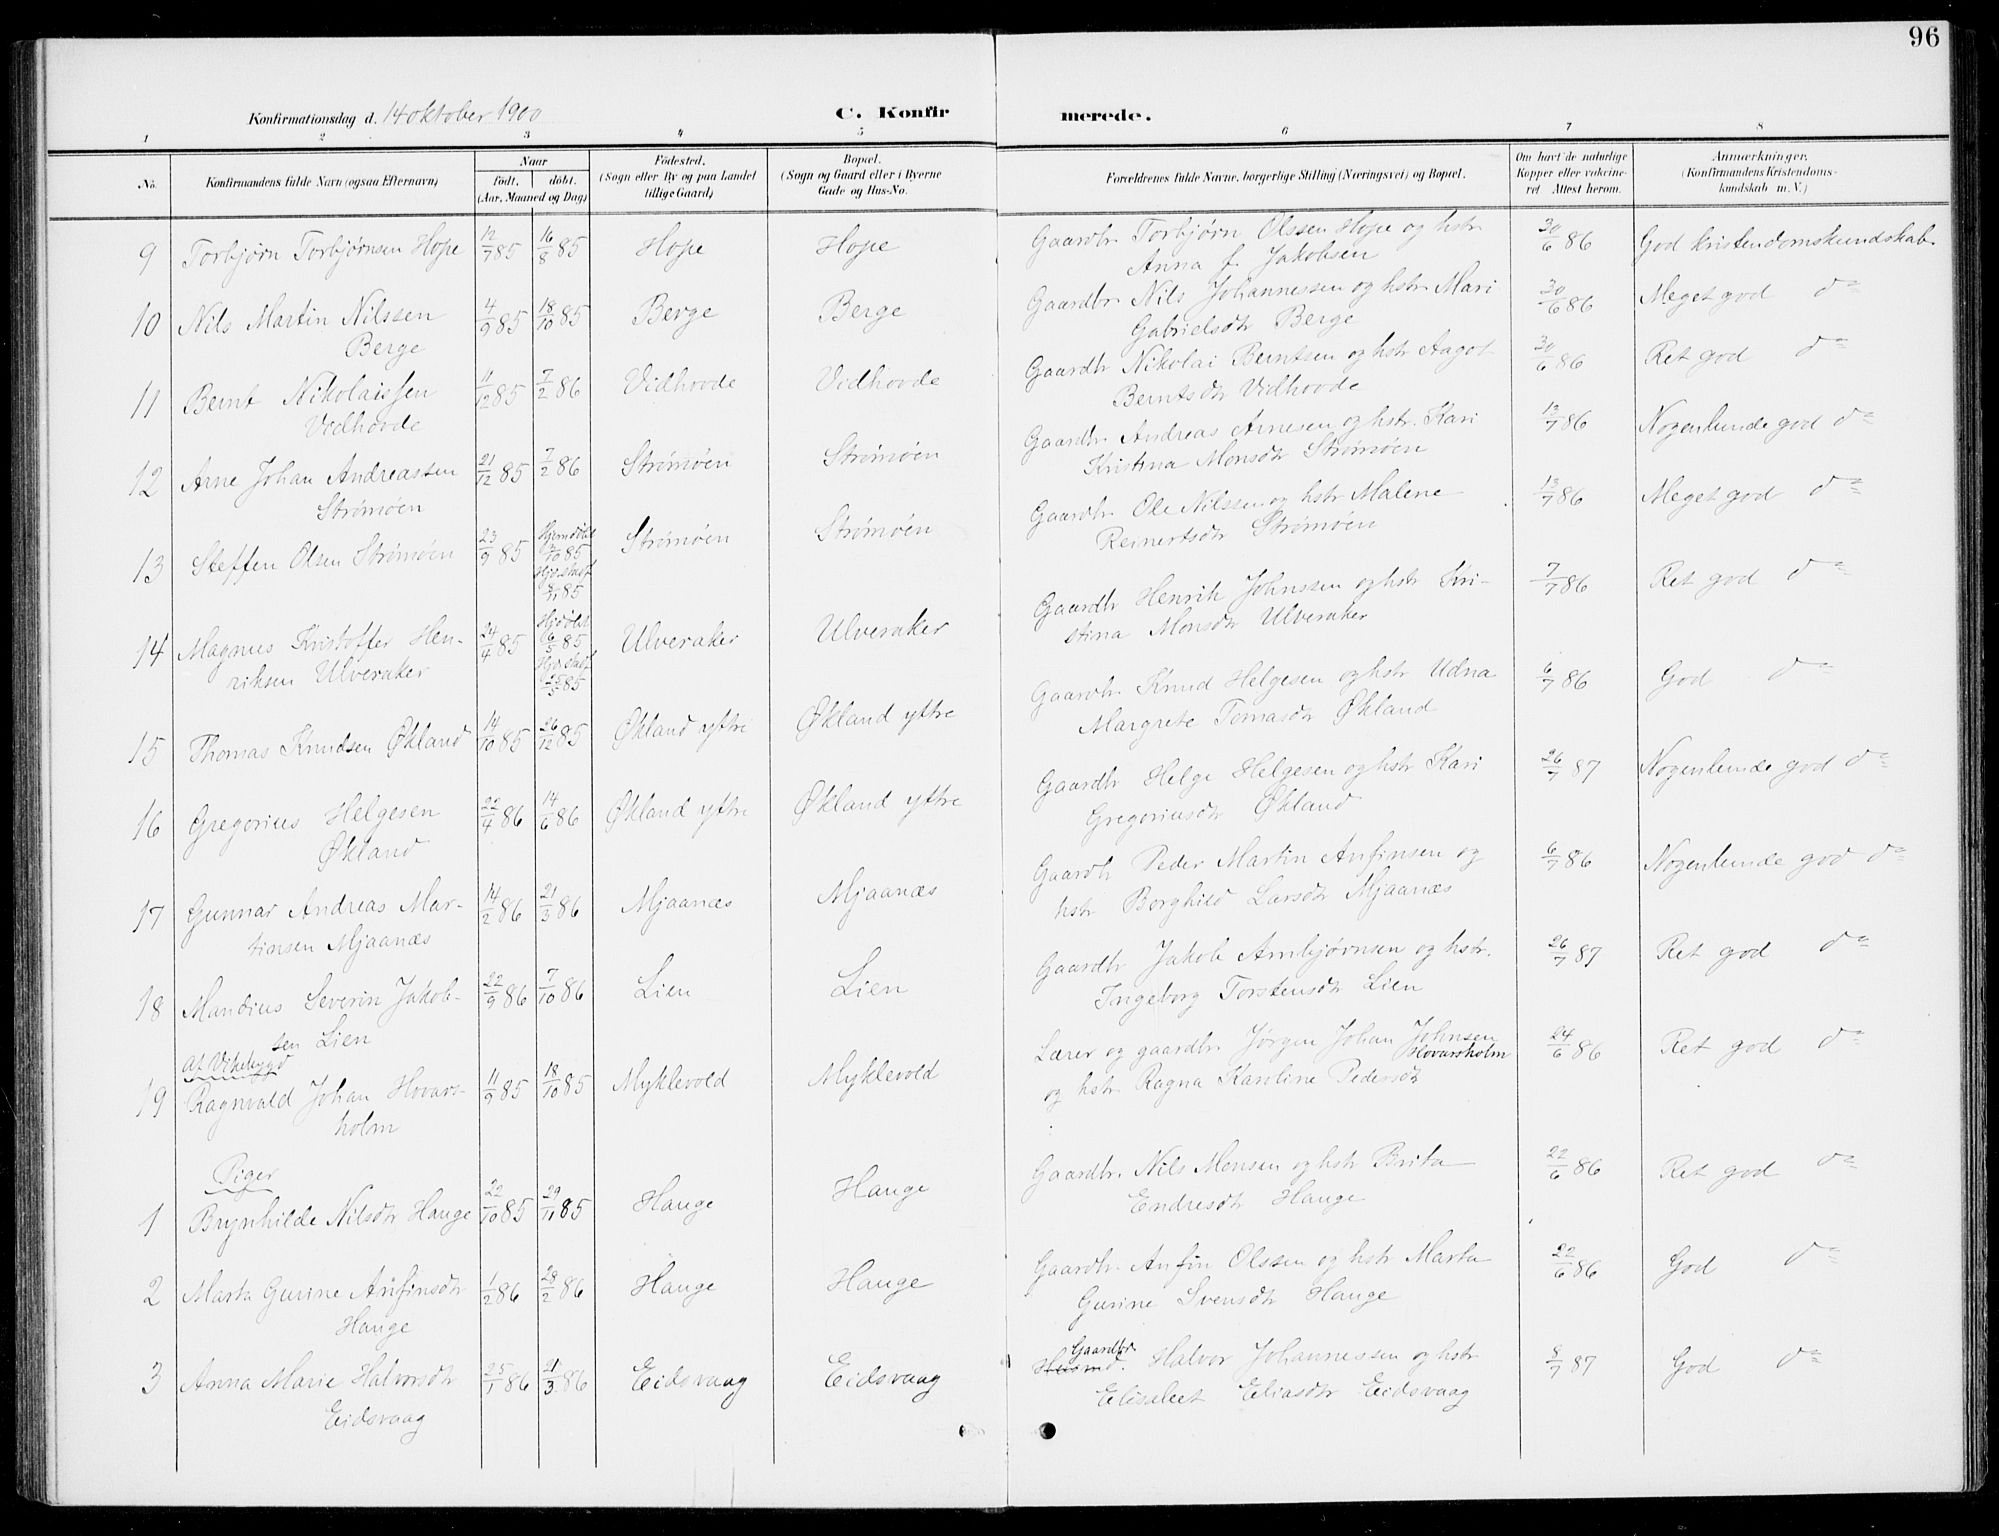 96
Konfirmationsdag d. 14 oktober 1900 C. Konfirmerede.
1 2 3 4 5 6 7 8
No.
Konfirmandens fulde Navn (ogsaa Efternavn)
Naar
födt. döbt.
(Aar, Maaned og Dag)
Födested.
(Sogn eller By og paa Landet
tillige Gaard)
Bopæl.
(Sogn og Gaard eller i Byerne
Gade og Hus-No.
Forældrenes fulde Navne, borgerlige Stilling (Næringsvei) og Bopæl.
Om havt de naturlige
Kopper eller vakcine-
ret. Attest herom.
Anmærkninger.
(Konfirmandens Kristendoms-
kundskab m. V.)
9 Torbjørn Torbjørnsen Hope 12/7 85 16/8 85 Hope Hope Gaardbr. Torbjørn Olssen Hope og hstr 30/6 86 God kristendomskundskab
Anna f. Jakobsen
10 Nils Martin Nilssen 4/9 85 18/10 85 Berge Berge Gaardbr. Nils Johannessen og hstr Mari 30/6 86 Meget god do
Berge Gabrielsdtr Berge
11 Bernt Nikolaissen 11/12 85 7/2 86 Vidhovde Vidhovde Gaardbr Nikolai Berntsen og hstr Aagot 30/6 86 Ret god do
Vidhovde Berntsdtr Vidhovde
12 Arne Johan Andreassen 21/12 85 7/2 86 Strømøen Strømøen Gaardbr. Andreas Arnesen og hstr. Kari 13/7 86 Nogenlunde god do
Strømøen Kristina Monsdtr Strømøen
13 Steffen Olsen Strømøen 23/9 85 Hjemdöbt /10 85 Strømøen Strømøen Gaardbr. Ole Nilssen og hstr Malene 13/7 86 Meget god do
Hjd. stadf. /11 85 Reinertsdtr Strømøen
14 Magnus Kristoffer Hen- 24/4 85 Hjdöbt 6/5 85 Ulveraker Ulveraker Gaardbr Henrik Johnssen og hstr Kri- 7/7 86 Ret god do
riksen Ulveraker Hjd. stadf 25/5 85 stina Monsdtr Ulveraker
15 Thomas Knudsen Økland 14/10 85 26/12 85 Økland yttre Økland yttre Gaardbr. Knud Helgesen og hstr Udna 6/7 86 God do
Margrete Tomasdtr Økland
16 Gregorius Helgesen 22/4 86 14/6 86 Økland yttre Økland yttre Gaardbr Helge Helgesen og hstr Kari 26/7 87 Nogenlunde god do
Økland Gregoriusdtr Økland
17 Gunnar Andreas Mar- 14/2 86 21/3 86 Mjaanæs Mjaanæs Gaardb Peder Martin Anfinsen og 6/7 86 Nogenlunde god do
tinsen Mjaanæs hstr Borghild Larsdtr Mjaanæs
18 Mandius Severin Jakob- 22/9 86 7/10 86 Lien Lien Gaardbr Jakob Ambjørnsen og hstr. 26/7 87 Ret god do
sen Lien Ingeborg Torstensdtr Lien
Af Vikebygd
19 Ragnvald Johan Hovars- 11/9 85 18/10 85 Myklevold Myklevold Lærer og gaardbr. Jørgen Johan Johnsen Hovarsholm 24/6 86 Ret god do
holm og hstr Ragna Karoline Pedersdtr
Piger
1 Brynhilde Nilsdtr Hauge 22/10 85 29/11 85 Hauge Hauge Gaardbr. Nils Monsen og hstr Brita 22/6 86 Ret god do
Endresdtr Hauge
2 Marta Gurine Anfinsdtr 1/2 86 28/2 86 Hauge Hauge Gaardbr. Anfin Olssen og hstr Marta 22/6 86 God do
Hauge Gurine Svensdtr Hauge
3 Anna Marie Halvorsdtr 25/1 86 21/3 86 Eidsvaag Eidsvaag Husmd. Gaardbr. Halvor Johannessen og hstr 8/7 87 God do
Eidsvaag Elisabet Eliasdtr Eidsvaag